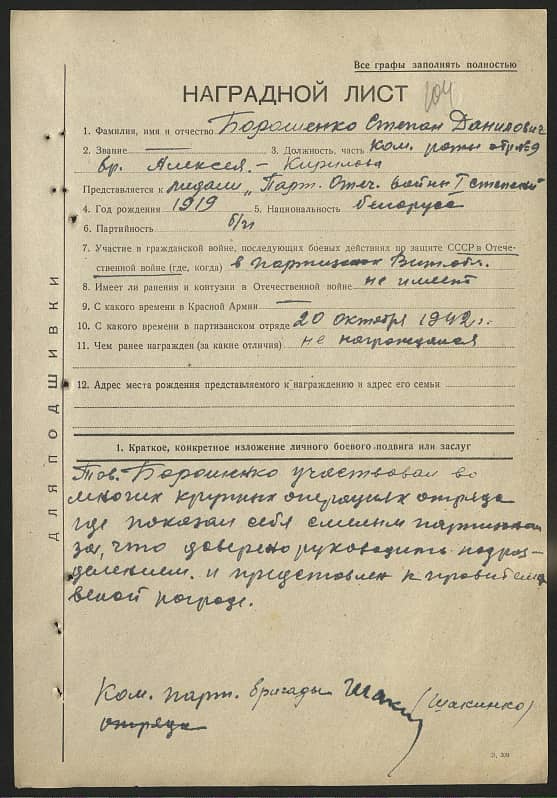 Все графы заполнять полностью
НАГРАДНОЙ ЛИСТ 104
1. Фамилия, имя и отчество Борошенко Степан Данилович
2. Звание — 3. Должность, часть Ком. роты отр № 9
бр. Алексея. – Кирилова
Представляется к медали „Парт. Отеч. войны I степени"
4. Год рождения 1919 5. Национальность белорусс
6. Партийность б/п
7. Участие в гражданской войне, последующих боевых действиях по защите СССР в Отече-
ственной войне (где, когда) в партизанах Вит. обл.
8. Имеет ли ранения и контузии в Отечественной войне не имеет
9. С какого времени в Красной Армии —
10. С какого времени в партизанском отряде 20 октября 1942 г.
11. Чем ранее награжден (за какие отличия) не награждался
12. Адрес места рождения представляемого к награждению и адрес его семьи
1. Краткое, конкретное изложение личного боевого подвига или заслуг
Тов. Борошенко участвовал во
многих крупных операциях отряда
где показал себя смелым партизаном
за, что доверено руководить подраз-
делением. и представлен к правительст
венной награде.
Ком. парт. бригады Шакин (Шакинко)
отряда
ДЛЯ ПОДШИВКИ